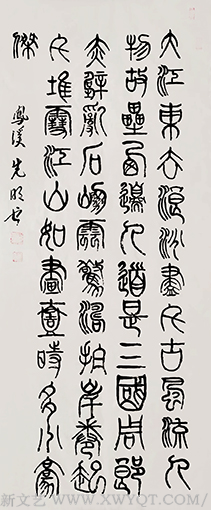 大江東去浪淘盡千古風流人
物故壘西邊人道是三國周郎
赤壁亂石崩雲驚濤拍岸卷起
千堆雪江山如畫壹時多少豪
傑
鳳溪 先明書
新文艺 WWW.XWYQT.COM